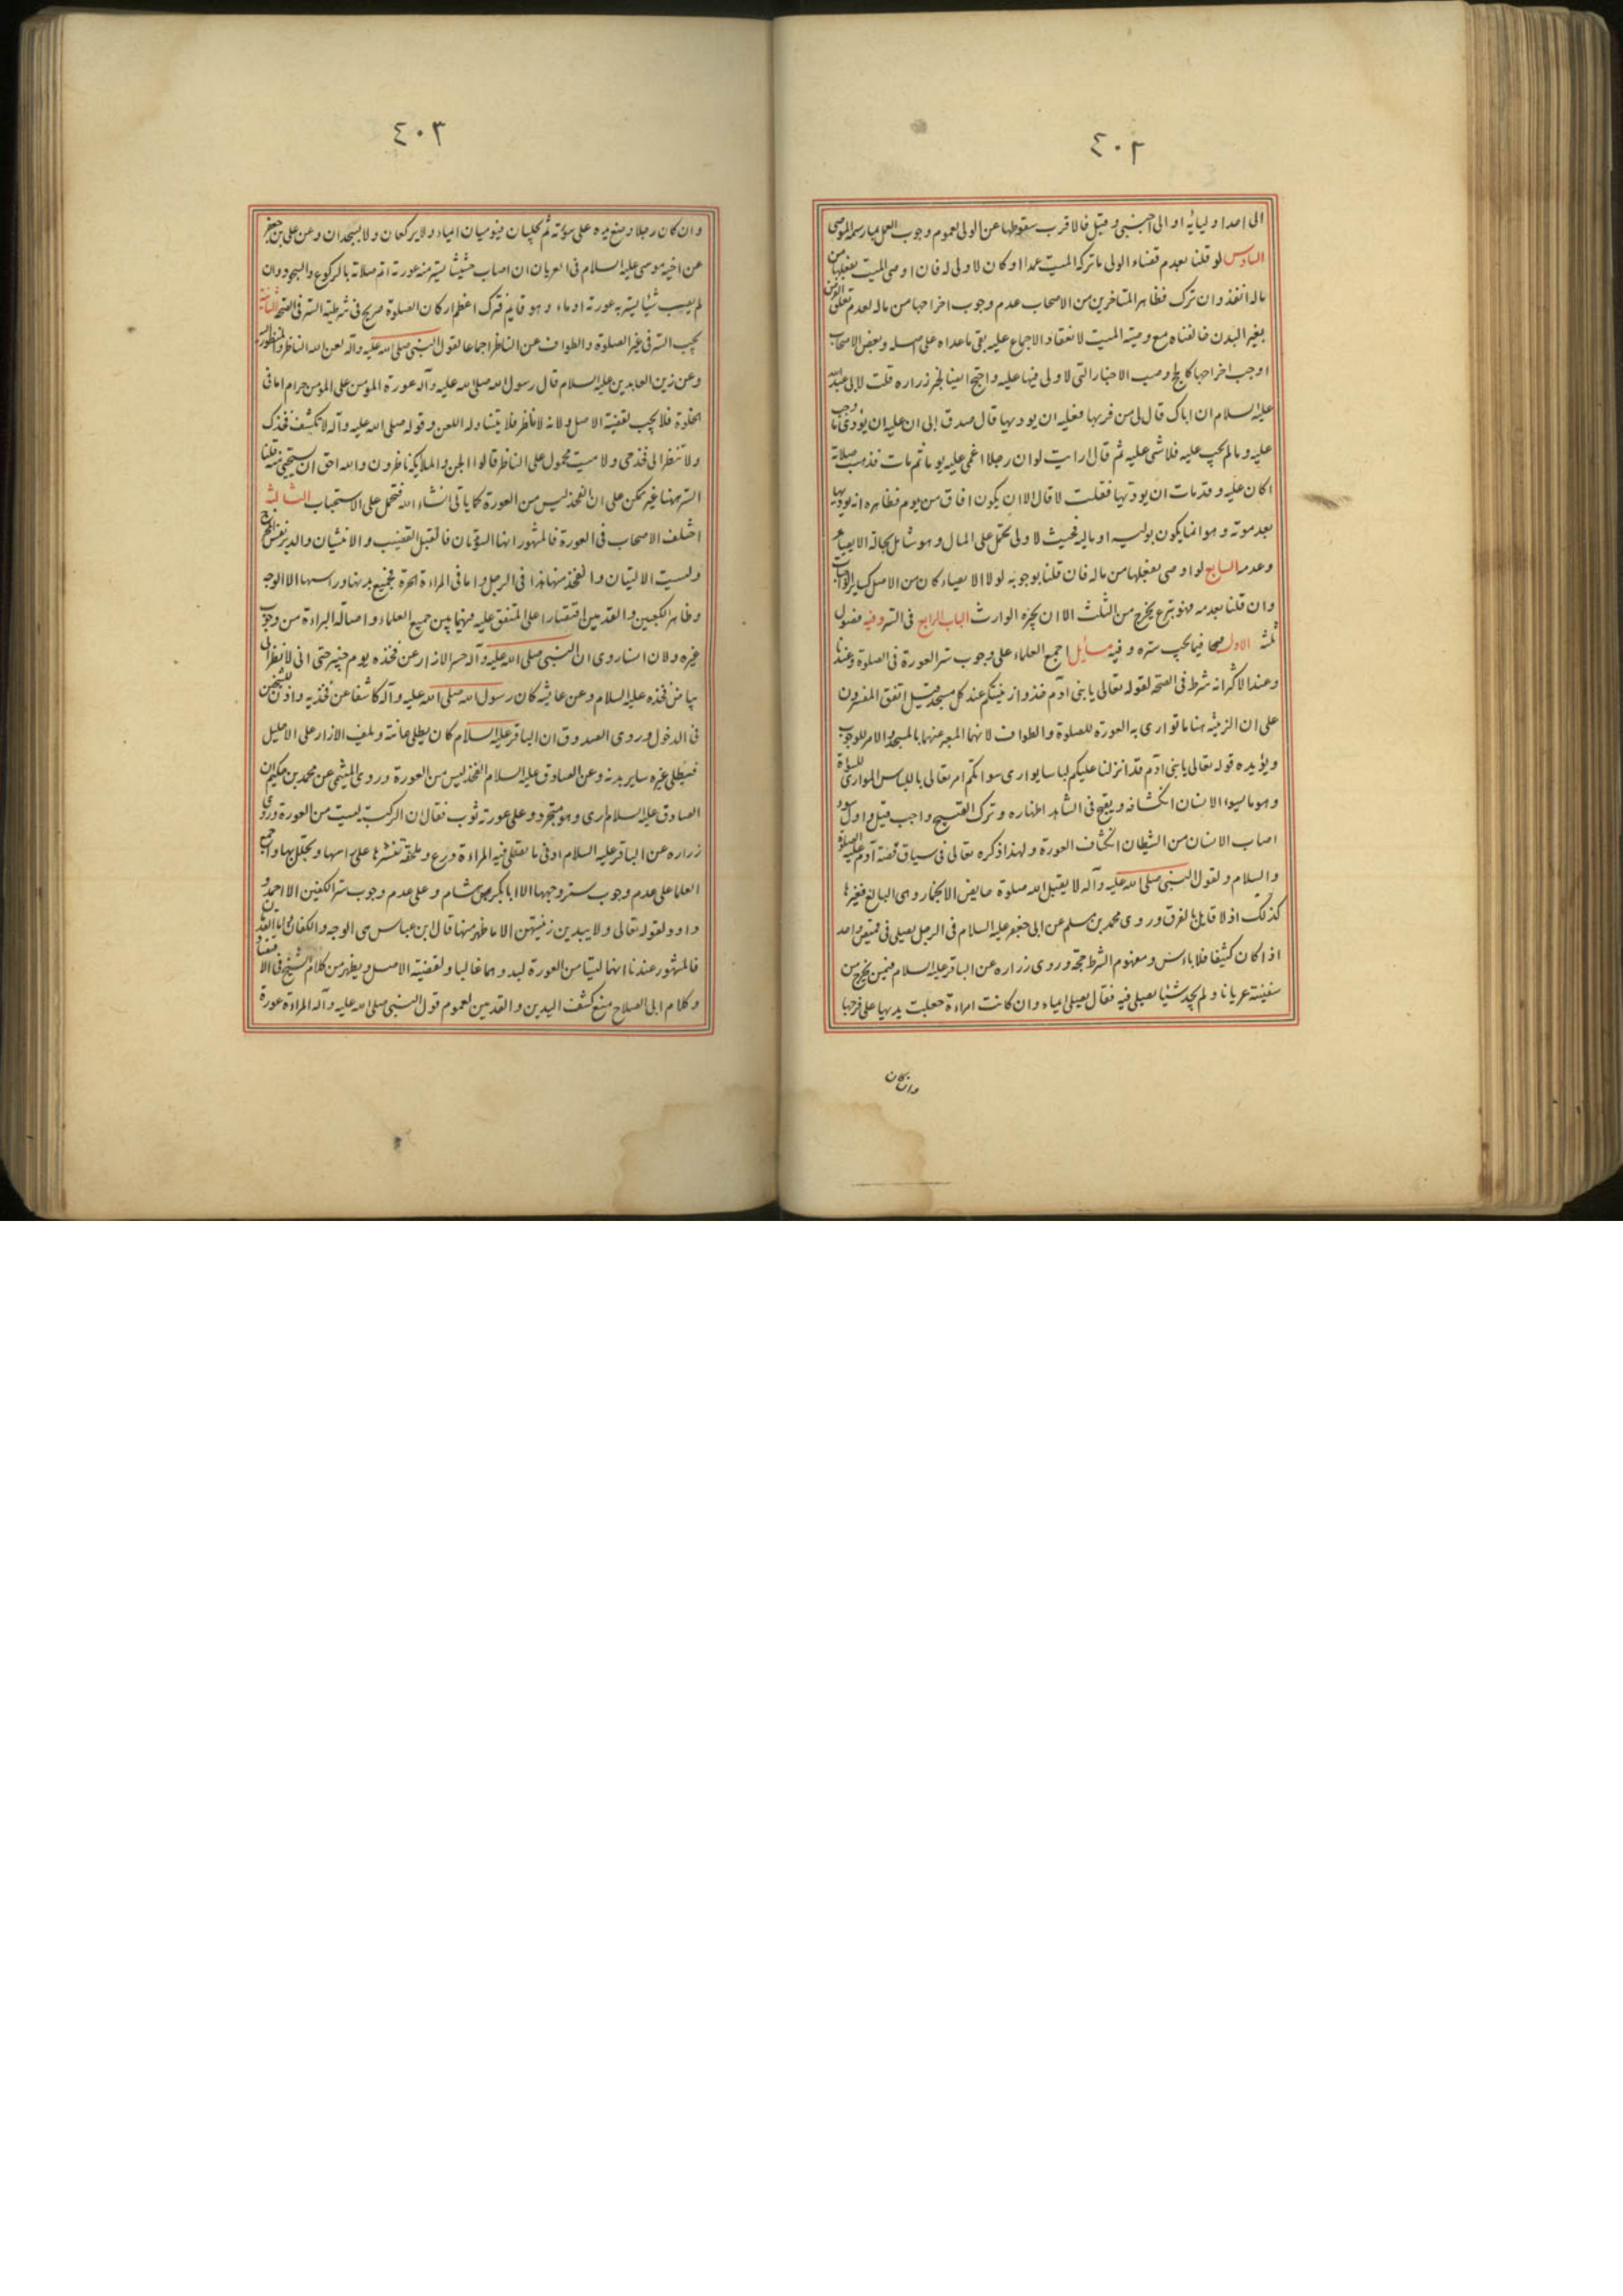 ٤٠٢
الى احد اوليائه او الى اجنبي وقيل فالاقرب سقوطها عن الولي لعموم وجوب العمل بما رسمه الموصي
السادس لو قلنا بعدم قضاء الولي ما تركه الميت عمدا او كان لا ولى له فان اوصى الميت بفعلها من
ماله انفذ وان ترك فظاهر المتاخرين من الاصحاب عدم وجوب اخراجها من ماله لعدم تعلق الفرض
بغير البدن خالفناه مع وصية الميت لانعقاد الاجماع عليه بقى ما عداه على اصله وبعض الاصحاب
اوجب اخراجها كالحج وصب الاخبار التي لا ولى فيها عليه واحتج ايضا بخبر زراره قلت لابى عبد الله
عليه السلام ان اباك قال لى من فر بها فعليه ان يوديها قال صدق ابى ان عليه ان يودى ما وجب
عليه وما لم يجب عليه فلا شى عليه ثم قال ارايت لو ان رجلا اغمى عليه يوما ثم مات فذهبت صلاته
اكان عليه وقد مات ان يوديها فقلت لا قال الا ان يكون افاق من يومه فظاهره انه يوديها
بعد موته وهو انما يكون بوليه او ماله فحيث لا ولى تحمل على المال وهو شامل بحالة الايصاء
وعدمه السابع لو اوصى بفعلها من ماله فان قلنا بوجوبه لولا الايصاء كان من الاصل كساير الواجبات
وان قلنا بعدمه فهو تبرع يخرج من الثلث الا ان يجيزه الوارث الباب الرابع فى الستر وفيه فصول
ثلثة الاول فيما يجب ستره وفيه مسايل اجمع العلماء على وجوب ستر العورة فى الصلوة وعندنا
وعند الاكثر انه شرط فى الصحة لقوله تعالى يا بنى آدم خذوا زينتكم عند كل مسجد قيل اتفق المفسرون
على ان الزينة هنا ما توارى به العورة للصلوة والطواف لانهما المعبر عنهما بالمسجد والامر للوجوب
ويؤيده قوله تعالى يا بنى آدم قد انزلنا عليكم لباسا يوارى سواتكم امر تعالى باللباس الموارى للسواة
وهو ما يسوء الانسان انكشافه ويقبح فى الشاهد اظهاره وترك القبيح واجب قيل واول سوء
اصاب الانسان من الشيطان انكشاف العورة ولهذا ذكره تعالى فى سياق قصة آدم عليه الصلوة
والسلام ولقول النبى صلى الله عليه وآله لا يقبل الله صلوة حايض الا بخمار وهى البالغ فغيرها
كذلك اذ لا قايل بالفرق وروى محمد بن مسلم عن ابى جعفر عليه السلام فى الرجل يصلى فى قميص واحد
اذا كان كثيفا فلا باس ومفهوم الشرط حجة وروى زراره عن الباقر عليه السلام فيمن يخرج من
سفينة عريانا ولم يجد شيئا يصلى فيه فقال يصلى ايماء وان كانت امراءة جعلت يديها على فرجها
وان كان
٤٠٣
وان كان رجلا وضع يده على سوته ثم يجلسان فيوميان ايماء ولا يركعان ولا يسجدان وعن على بن جعفر
عن اخيه موسى عليه السلام فى العريان ان اصاب حشيشا يستر منه عورته اتم صلاته بالركوع والسجود وان
لم يصب شيئا يستر به عورته اوماء وهو قايم فترك اعظم اركان الصلوة صريح فى شرطية الستر فى الصحة الثانية
يجب الستر فى غير الصلوة والطواف عن الناظر اجماعا لقول النبى صلى الله عليه وآله لعن الله الناظر والمنظور اليه
وعن زين العابدين عليه السلام قال رسول الله صلى الله عليه وآله عورة المؤمن على المؤمن حرام اما فى
الخلوة فلا يجب لقضية الاصل ولانه لا ناظر فلا يتناوله اللعن وقوله صلى الله عليه وآله لا تكشف فخذك
ولا تنظر الى فخذ حى ولا ميت محمول على الناظر قالوا الجن والملايكة ناظرون والله احق ان يستحيى منه قلنا
الستر هنا غير ممكن على ان الفخذ ليس من العورة كما ياتى انشاء الله فتحمل على الاستحباب الثالثة
اختلف الاصحاب فى العورة فالمشهور انها السوءتان فالقبل القضيب والانثيان والدبر نفس المخرج
وليست الاليتان والفخذ منها هذا فى الرجل واما فى المراءة الحرة فجميع بدنها وراسها الا الوجه
وظاهر الكفين والقدمين اقتصارا على المتفق عليه فيهما بين جميع العلماء واصالة البراءة من وجوب
غيره ولان انسا روى ان النبى صلى الله عليه وآله حسر الازار عن فخذه يوم خيبر حتى انى لانظر الى
بياض فخذه عليه السلام وعن عايشه كان رسول الله صلى الله عليه وآله كاشفا عن فخذيه واذن للشيخين
فى الدخول وروى الصدوق ان الباقر عليه السلام كان يطلى عانته ويلف الازار على الاحليل
فيطلى غيره ساير بدنه وعن الصادق عليه السلام الفخذ ليس من العورة وروى الميثمى عن محمد بن حكيم ان
الصادق عليه السلام رى وهو متجرد وعلى عورته ثوب فقال ان الركبة ليست من العورة وروى
زراره عن الباقر عليه السلام ادنى ما تصلى فيه المراءة درع وملحفة تنشرها على راسها وتجلل بها واجمع
العلما على عدم وجوب ستر وجهها الا ابا بكر بن هشام وعلى عدم وجوب ستر الكفين الا احمد و
داود لقوله تعالى ولا يبدين زينتهن الا ما ظهر منها قال ابن عباس هى الوجه والكفان واما القدمان
فالمشهور عندنا انهما ليستا من العورة لبدوهما غالبا ولقضية الاصل ويظهر من كلام الشيخ فى الاقتصاد
وكلام ابى الصلاح منع كشف اليدين والقدمين لعموم قول النبى صلى الله عليه وآله المراءة عورة